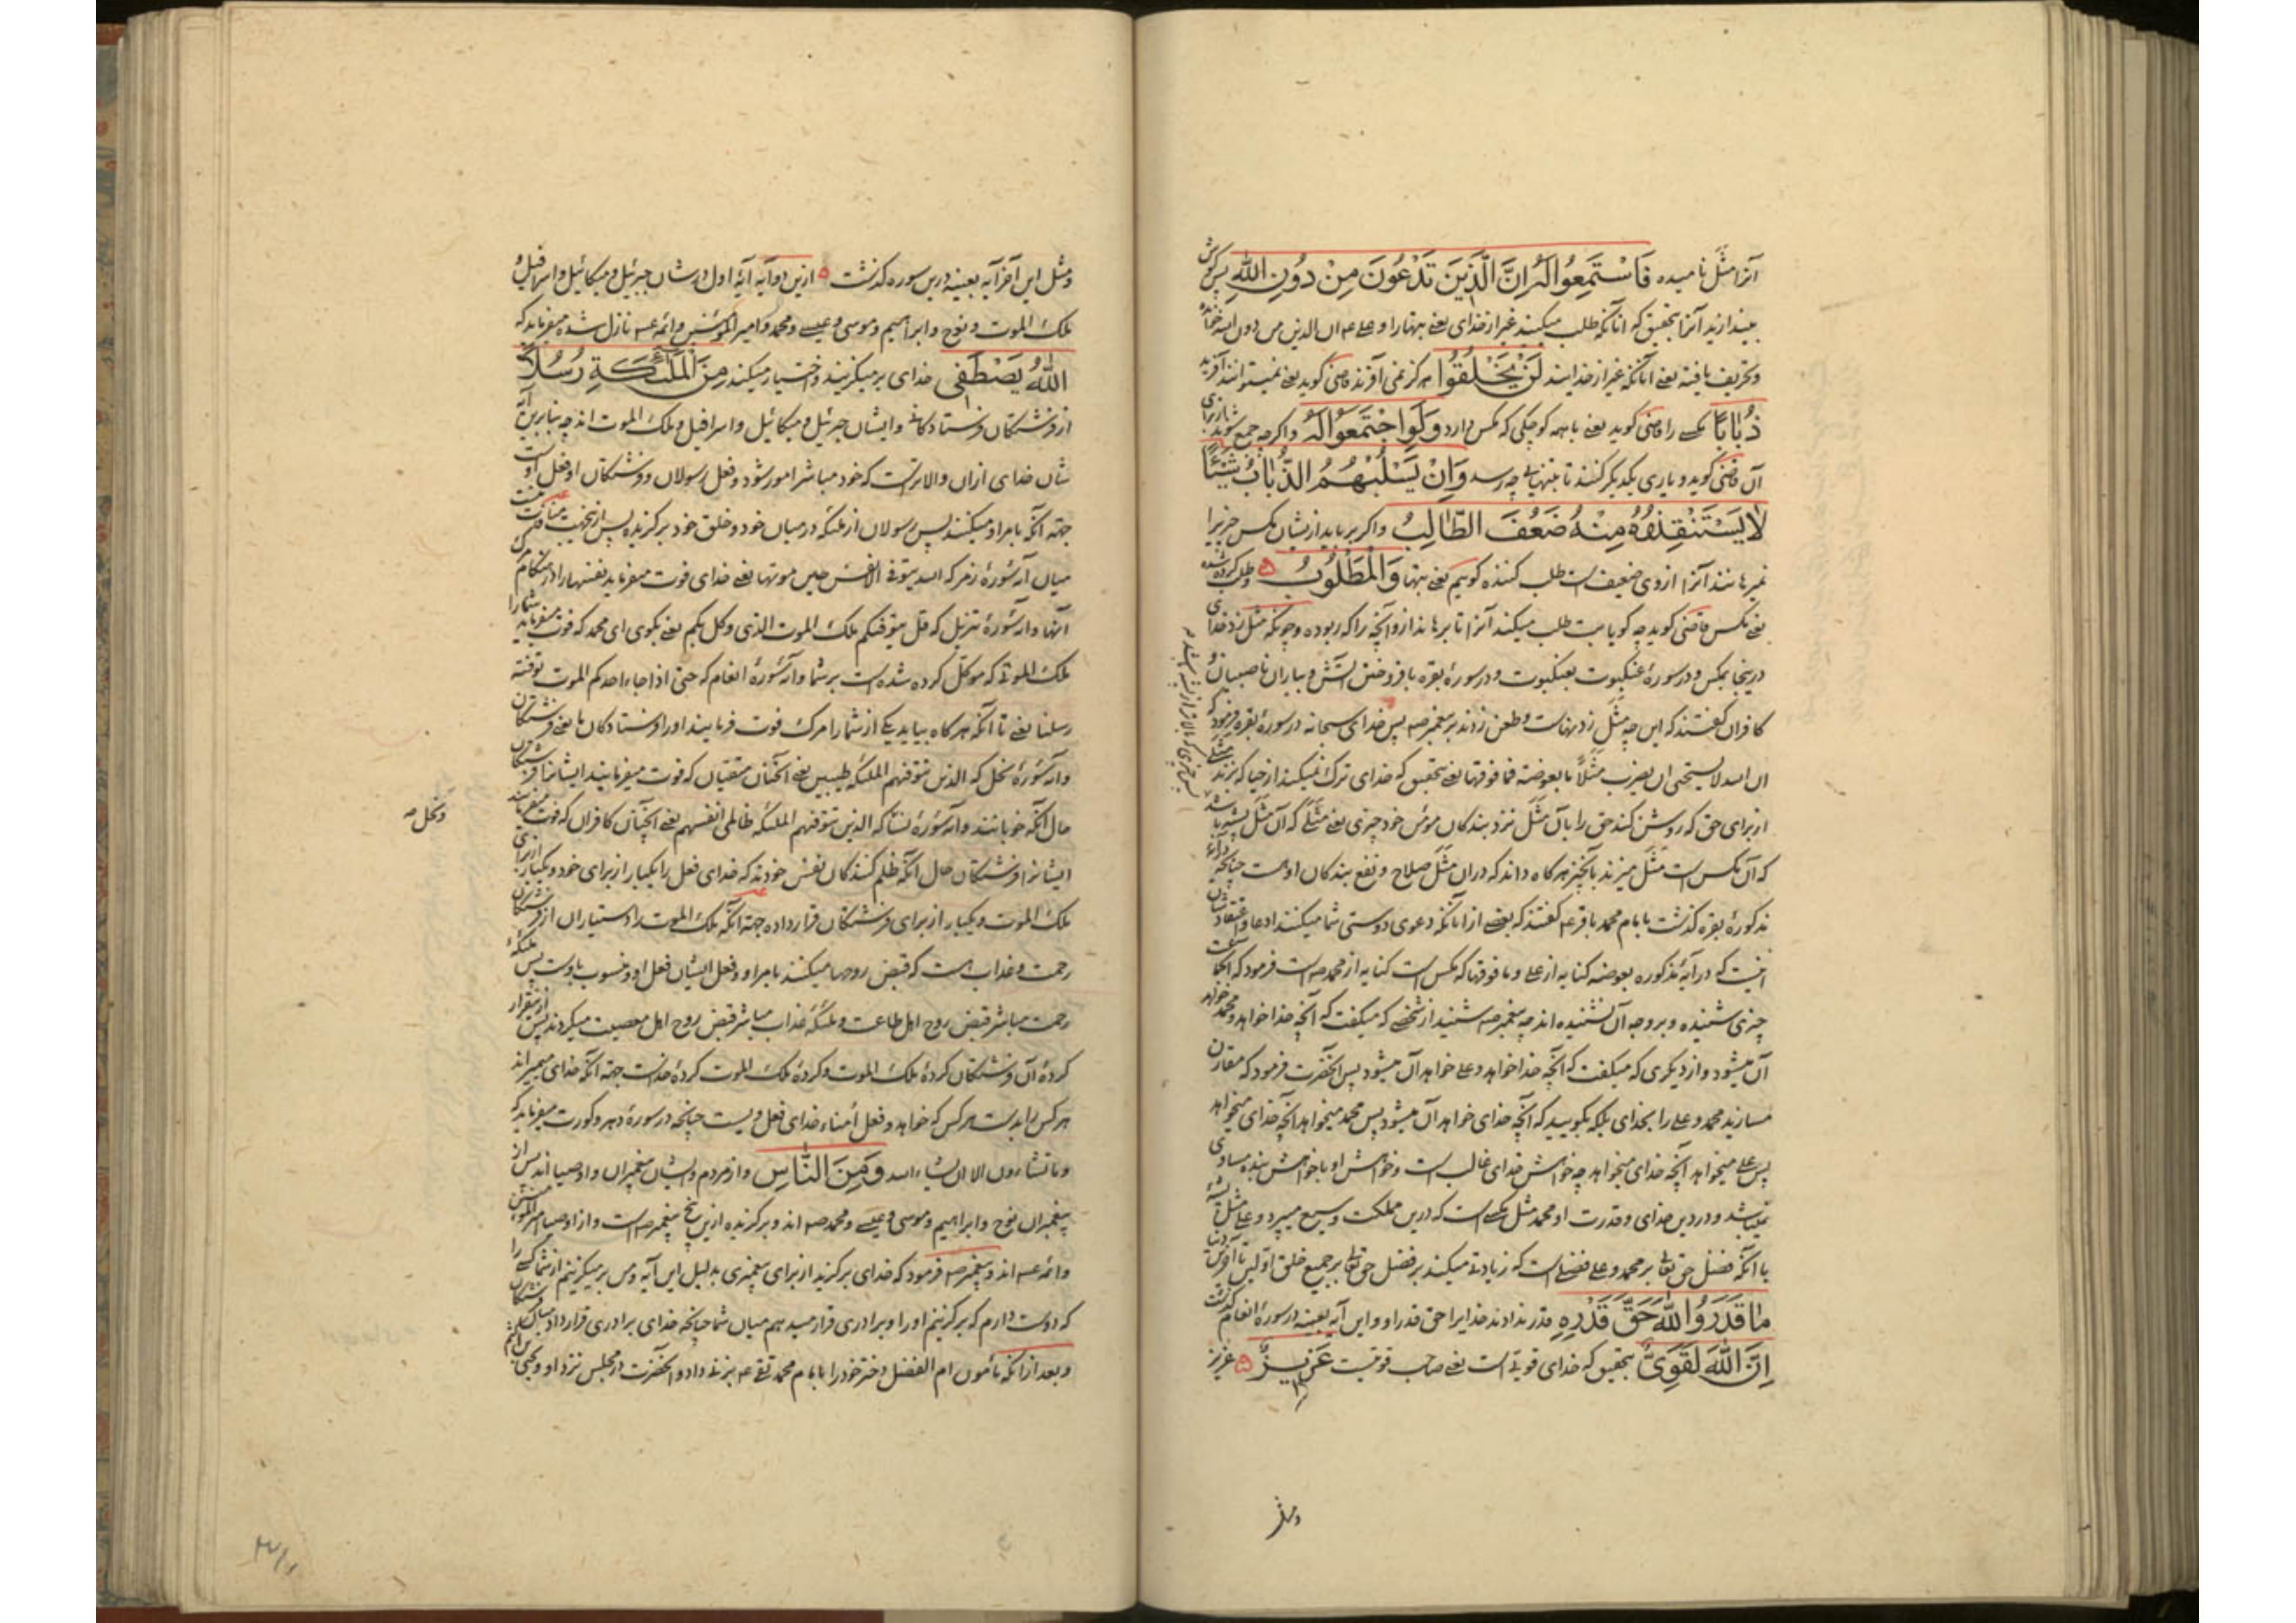 آنرا مثل نامیده فَاسْتَمِعُوا لَهُ اِنَّ الَّذِینَ تَدْعُونَ مِنْ دُونِ اللّٰهِ پس گوش
بیندازید آنرا بتحقیق که آنانکه طلب میکنید غیر از خدای یعنی بتها را و علی ع ان الذین من دون الله خوانده
و تحریف یافته یعنی آنانکه غیر از خدایند لَنْ یَخْلُقُوا هرگز نمی آفرند قاضی گوید یعنی نمیتوانند آفرید
ذُبَابًا مگسی را قاضی گوید یعنی با همه کوچکی که مگس دارد وَلَوِ اجْتَمَعُوا لَهُ و اگرچه جمع شوند از برای
آن قاضی گوید و یاری یکدیگر کنند تا بتنهایی چه رسد وَاِنْ یَسْلُبْهُمُ الذُّبَابُ شَیْئًا
لَا یَسْتَنْقِذُوهُ مِنْهُ ضَعُفَ الطَّالِبُ و اگر برباید ازیشان مگس چیزیرا
نمیرهانند آنرا از وی ضعیف است طلب کننده گوییم یعنی بتها وَالْمَطْلُوبُ و طلب کرده شده
یعنی مگس قاضی گوید چه گویا بت طلب میکند آنرا تا برهاند ازو آنچه را که ربوده و چونکه مثل زد خدای
درینجا بمگس و در سورهٔ عنکبوت بعنکبوت و در سورهٔ بقره بافروختن آتش و بباران ناصبیان و
کافران گفتند که این چه مثل زدنهاست و طعن زدند بر پیغمبر صه پس خدای سبحانه در سورهٔ بقره فرمود که
ان الله لا یستحیی ان یضرب مثلاً ما بعوضة فما فوقها یعنی بتحقیق که خدای ترک نمیکند از حیا که بزند مثلی
از برای حق که روشن کند حق را بآن مثل نزد بندگان مومن خود چیزی یعنی مثلی که آن مثل پشه باشد
که آن مگس است مثل میزند بآنچیز هرگاه داند که دران مثل صلاح و نفع بندگان اوست چنانچه
مذکورهٔ بقره گذشت بامام محمد باقر ع گفتند که بعضی از آنانکه دعوی دوستی شما میکنند ادعا و اعتقادشان
اینست که در آیهٔ مذکوره بعوضه کنایه از علی و ما فوقها که مگس است کنایه از محمد صه است فرمود که
چیزی شنیده و بر وجه آن نشنیده اند چه پیغمبر صه شنید از شخصی که میگفت که آنچه خدا خواهد و محمد خواهد
آن میشود و از دیگری که میگفت که آنچه خدا خواهد و علی خواهد آن میشود پس آنحضرت فرمود که مقارن
مسازید محمد و علی را بخدای بلکه بگویید که آنچه خدای خواهد آن میشود پس محمد میخواهد آنچه خدای میخواهد
پس علی میخواهد آنچه خدای میخواهد چه خواهش خدای غالب است و خواهش او با خواهش بنده مساوی
نمیباشد و در دین خدای و قدرت او محمد مثل مگسی است که درین مملکت وسیع میپرد و علی مثل پشه
با آنکه فضل حق تعا بر محمد و علی فضلی است که زیادتی میکند بر فضل حق تعا بر جمیع خلق اولین تا آخرین
مَا قَدَرُوا اللّٰهَ حَقَّ قَدْرِهِ قدر ندادند خدایرا حق قدر او و این آیه بعینه در سورهٔ انعام گذشت
اِنَّ اللّٰهَ لَقَوِیٌّ بتحقیق که خدای قویست یعنی صاحب قوتیست عَزِیزٌ عزیز
و مثل
و مثل این آخر آیه بعینه درین سوره گذشت ازین دو آیه آیهٔ اول در شان جبرئیل و میکائیل و اسرافیل و
ملک الموت و نوح و ابراهیم و موسی و عیسی و محمد و امیر المومنین و ائمه عسه نازل شده میفرماید که
اَللّٰهُ یَصْطَفِی خدای برمیگزیند و اختیار میکند مِنَ الْمَلٰئِکَةِ رُسُلًا
از فرشتگان فرستادگانی و ایشان جبرئیل و میکائیل و اسرافیل و ملک الموت اند چه بنابرین آیه
شان خدای ازان والاتر است که خود مباشر امور شود و فعل رسولان و فرشتگان او فعل اوست
جهته آنکه بامر او میکنند پس رسولان از ملئکه در میان خود و خلق خود برگزیده پس ازینجهت منافات نیست
میان آیهٔ سورهٔ زمر که الله یتوفی الانفس حین موتها یعنی خدای فوت میفرماید نفسها را در هنگام مرگ
آنها و آیهٔ سورهٔ تنزیل که قل یتوفیکم ملک الموت الذی وکل بکم یعنی بگوی ای محمد که فوت میفرماید شما را
ملک الموتی که موکل کرده شده است بر شما و آیهٔ سورهٔ انعام که حتی اذا جاء احدکم الموت توفته
رسلنا یعنی تا آنکه هرگاه بیاید یکی از شما را مرگ فوت فرمایند او را فرستادگان ما یعنی فرشتگان
و آیهٔ سورهٔ نحل که الذین تتوفیهم الملئکه طیبین یعنی آنچنان متقیان که فوت میفرمایند ایشانرا فرشتگان
حال آنکه خوبانند و آیهٔ سورهٔ نسا که الذین تتوفیهم الملئکه ظالمی انفسهم یعنی آنچنان کافران که فوت میفرمایند
و نحل صه
ایشانرا فرشتگان حال آنکه ظلم کنندگان نفس خودند که خدای فعل را یکبار از برای خود و یکبار از برای
ملک الموت و یکبار از برای فرشتگان قرار داده جهته آنکه ملک الموت را دستیاران از فرشتگان
رحمت و عذاب هست که قبض روحها میکنند بامر او و فعل ایشان فعل او و منسوب باوست پس ملئکهٔ
رحمت مباشر قبض روح اهل طاعت و ملئکهٔ عذاب مباشر قبض روح اهل معصیت میگردند پس ازینقرار
کردهٔ آن فرشتگان کردهٔ ملک الموت و کردهٔ ملک الموت کردهٔ خداست جهته آنکه خدای میمیراند
هر کس را بدست هر کس که خواهد و فعل امناء خدای فعل ویست چنانچه در سورهٔ دهر و کورت میفرماید که
و ما تشاءون الا ان یشاء الله وَمِنَ النَّاسِ و از مردم و ایشان پیغمبران و اوصیا اند پس از
پیغمبران نوح و ابراهیم و موسی و عیسی و محمد صه اند و برگزیده ازین پنج پیغمبر صه است و از اوصیا امیر المومنین
و ائمه عسه اند و پیغمبر صه فرمود که خدای برگزید از برای پیغمبری بدلیل این آیه و من برمیگزینم از شما کسی را
که دوست دارم که برگزینم او را و برادری قرار میدهم میان شما چنانچه خدای برادری قرار داد میان فرشتگان
و بعد از آنکه مأمون ام الفضل دختر خود را بامام محمد تقی ع بزنی داد و آنحضرت در مجلس نزد او و یحیی بن اکثم